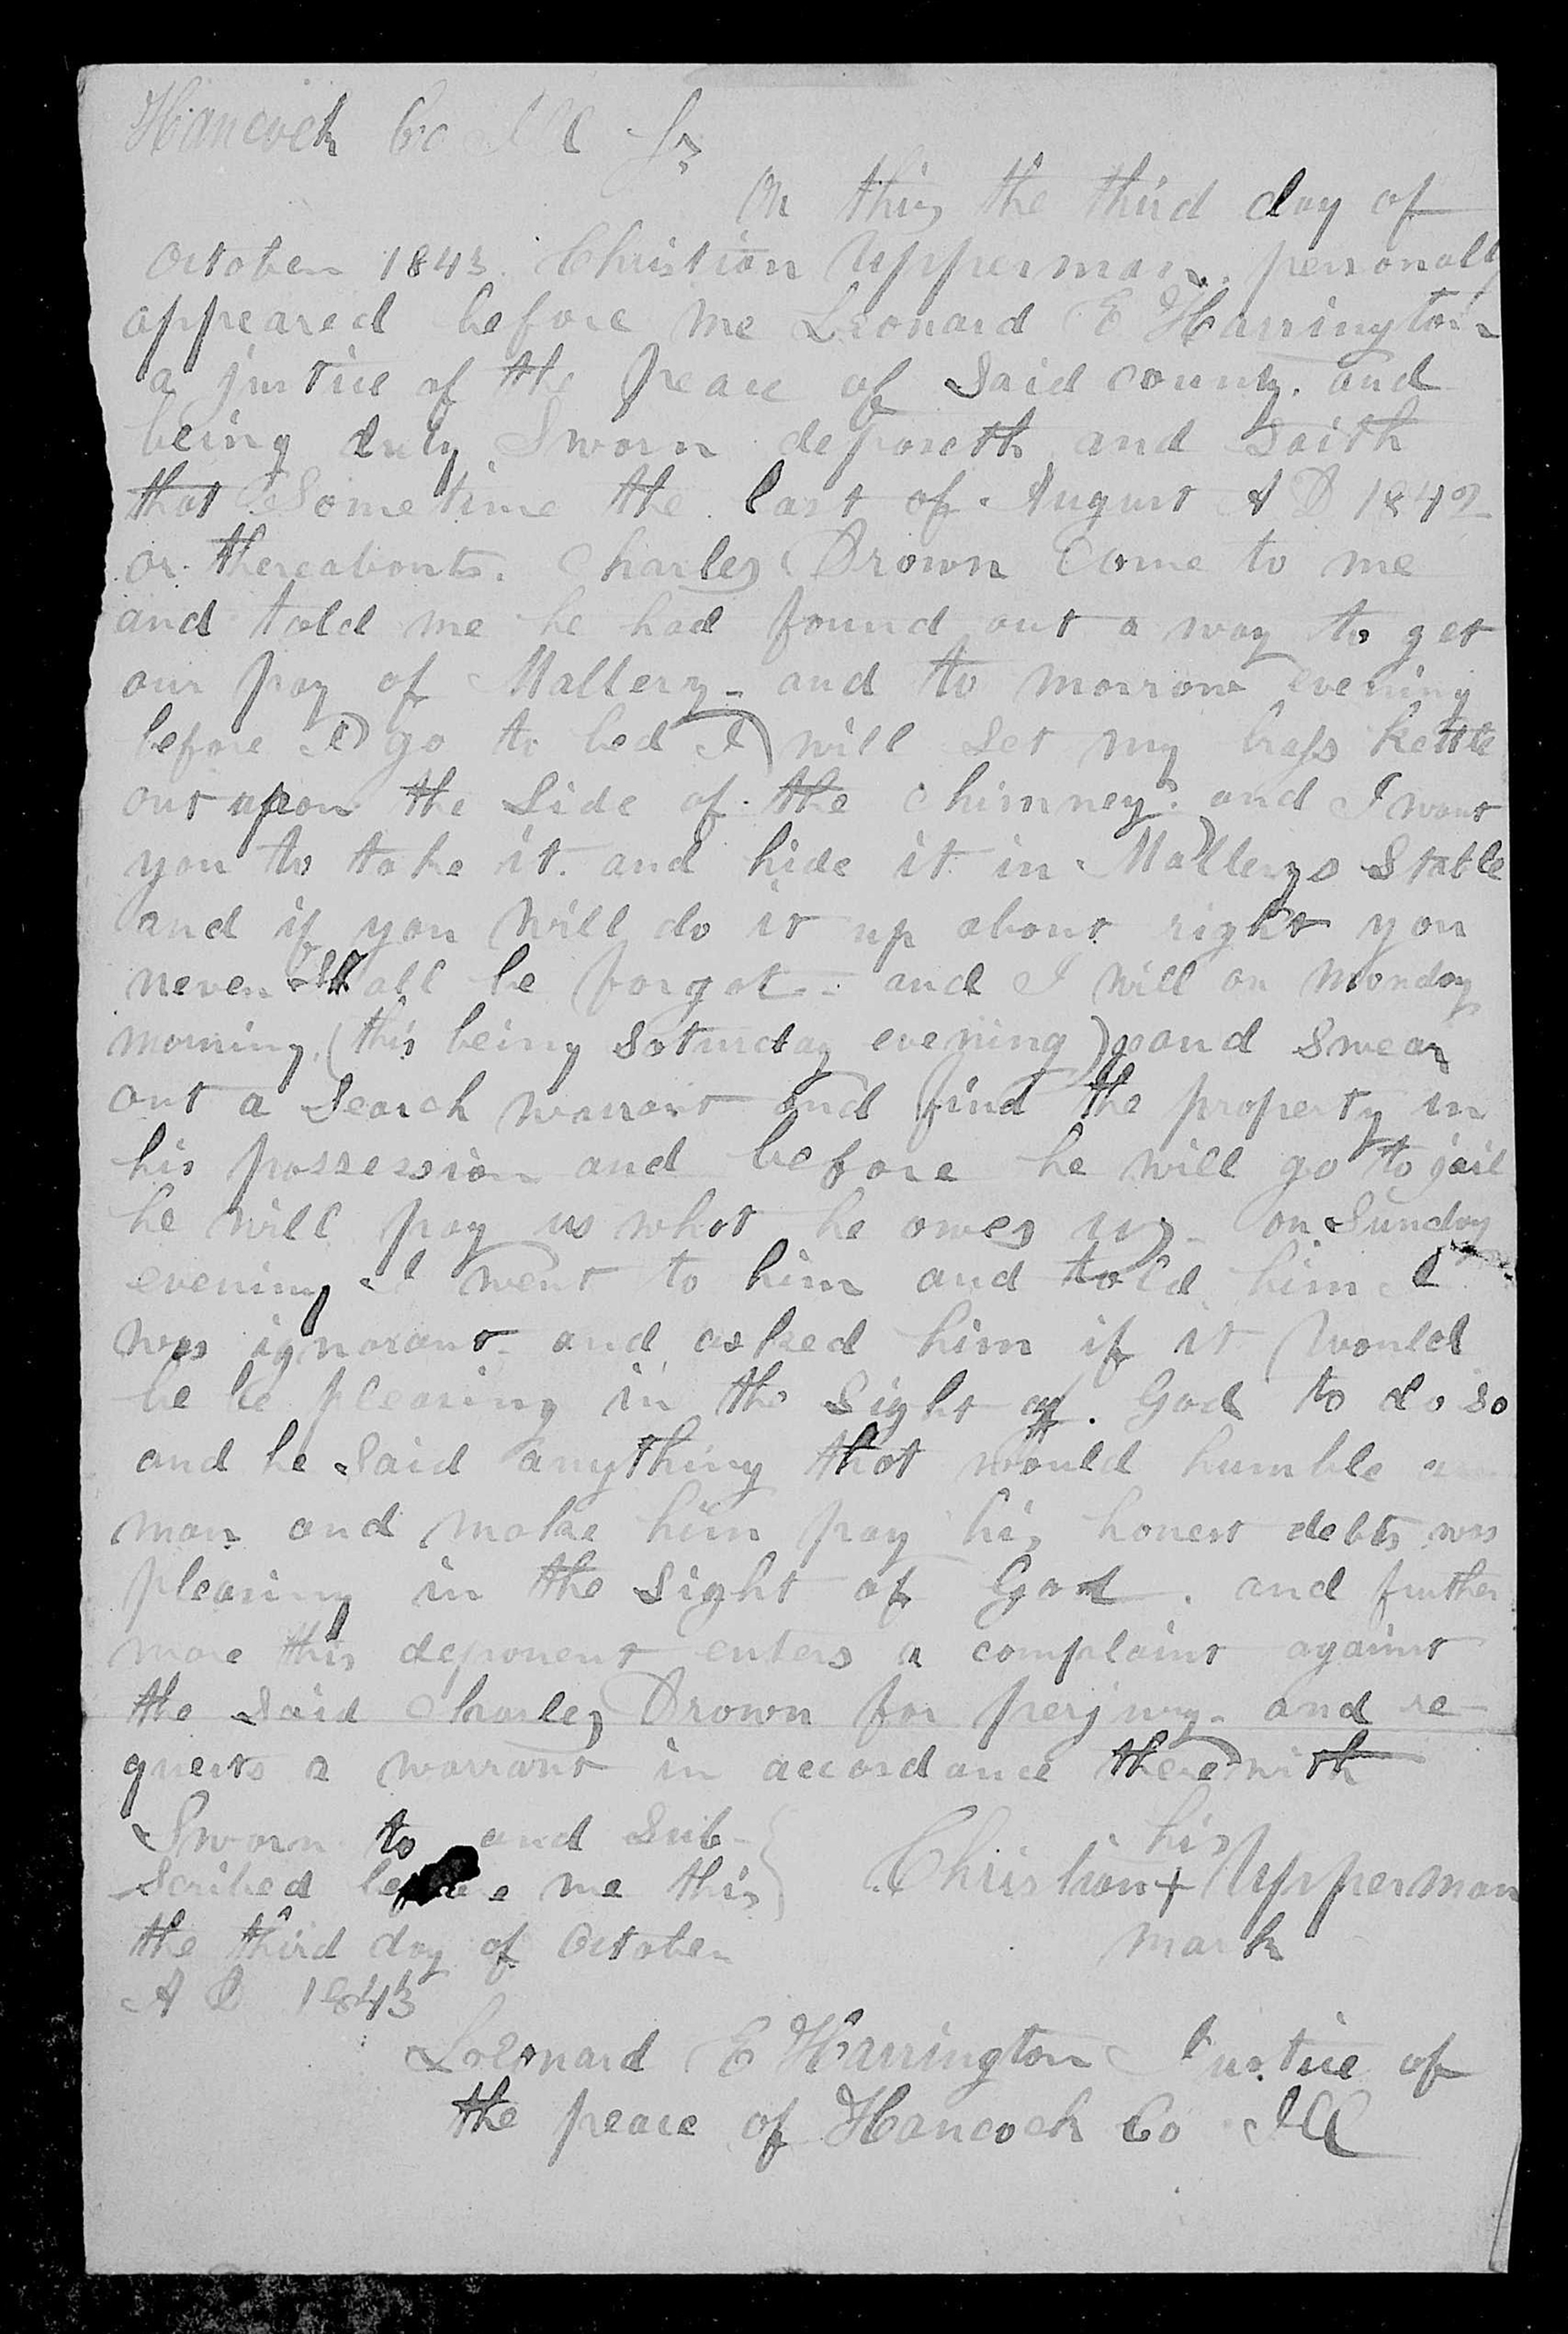 Hancock Co Ill Ss
On this the third day of
October 1843. Christian Upperman. personally
appeared before me Leonard E Harrington
a justice of the peace of Said county. and
being duly Sworn deposeth and Saith
that Sometime the last of August A D 1842
or thereabouts. Charles Drown come to me
and told me he had found out a way to get
our pay of Mallery - and to morrow evening
before I go to bed I will Set my brass kettle
out upon the Side of the chimney. and I want
you to take it. and hide it in Mallerys Stable
and if you will do it up about right you
never Shall be forgot - and I will on Monday
morning, (this being Saturday evening) go and Swear
out a Search warrant and find the property in
his possession and before he will go to jail
he will pay us what he owes us - on Sunday
evening I went to him and told him I
was ignorant - and asked him if it would
be be pleasing in the Sight of God to do so
and he Said anything that would humble a
man and make him pay his honest debts was
pleasing in the Sight of God. and further
more this deponent enters a complaint against
the Said Charles Drown for perjury - and re-
quests a warrant in accordance therewith
Sworn to and Sub-
scribed before me this
the third day of October
A D 1843
his
Christian + Upperman
mark
Leonard E Harrington Justice of
the peace of Hancock Co Ill